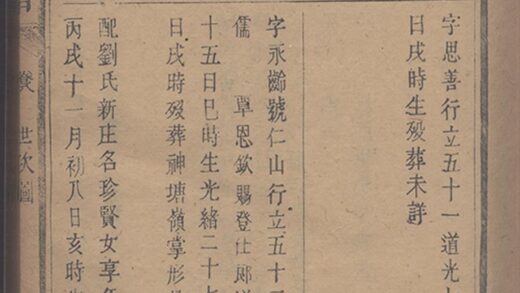 字思善行立五十一道光
日戌時生殁葬未詳
字永齡號仁山行立五十
儒 覃恩欽賜登仕郎
十五日巳時生光緒二十七
日戌時殁葬神塘嶺掌形
配劉氏新庄名珍賢女享年
丙戌十一月初八日亥時
世次圖